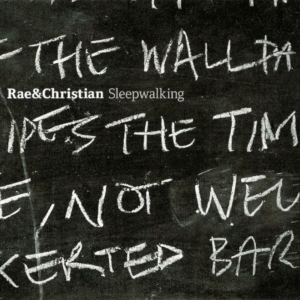 THE WALLPA
Rae&Christian Sleepwalking
IDES THE TIM
E, NOT WEL
CERTED BAR